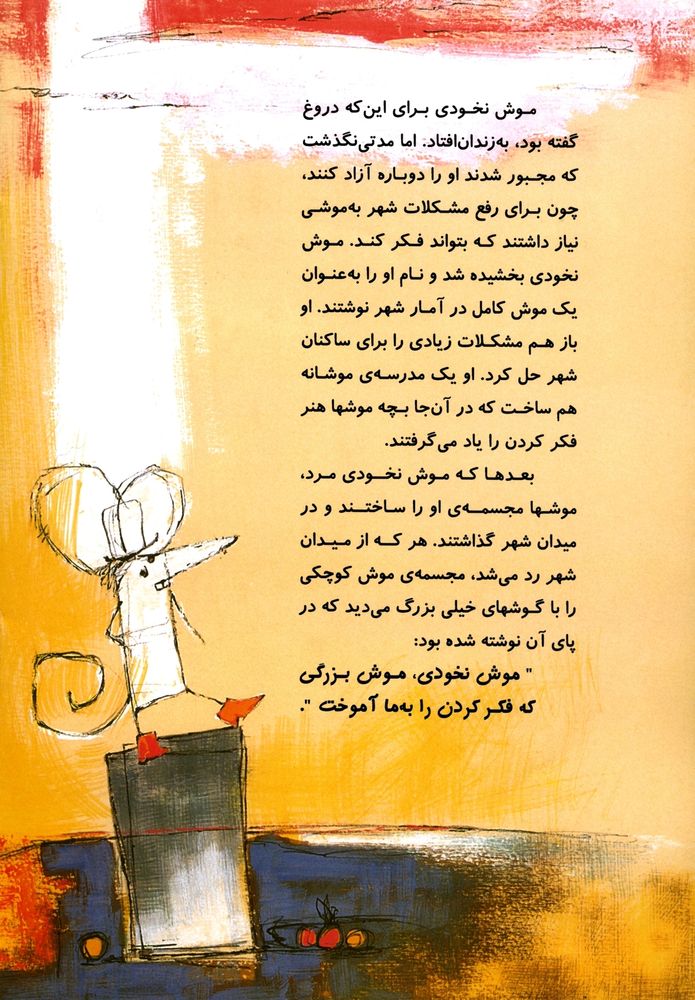 موش نخودی برای این‌که دروغ
گفته بود، به‌زندان‌افتاد. اما مدتی‌نگذشت
که مجبور شدند او را دوباره آزاد کنند،
چون برای رفع مشکلات شهر به‌موشی
نیاز داشتند که بتواند فکر کند. موش
نخودی بخشیده شد و نام او را به‌عنوان
یک موش کامل در آمار شهر نوشتند. او
باز هم مشکلات زیادی را برای ساکنان
شهر حل کرد. او یک مدرسه‌ی موشانه
هم ساخت که در آن‌جا بچه موشها هنر
فکر کردن را یاد می‌گرفتند.
بعدها که موش نخودی مرد،
موشها مجسمه‌ی او را ساختند و در
میدان شهر گذاشتند. هر که از میدان
شهر رد می‌شد، مجسمه‌ی موش کوچکی
را با گوشهای خیلی بزرگ می‌دید که در
پای آن نوشته شده بود:
" موش نخودی، موش بزرگی
که فکر کردن را به‌ما آموخت ".